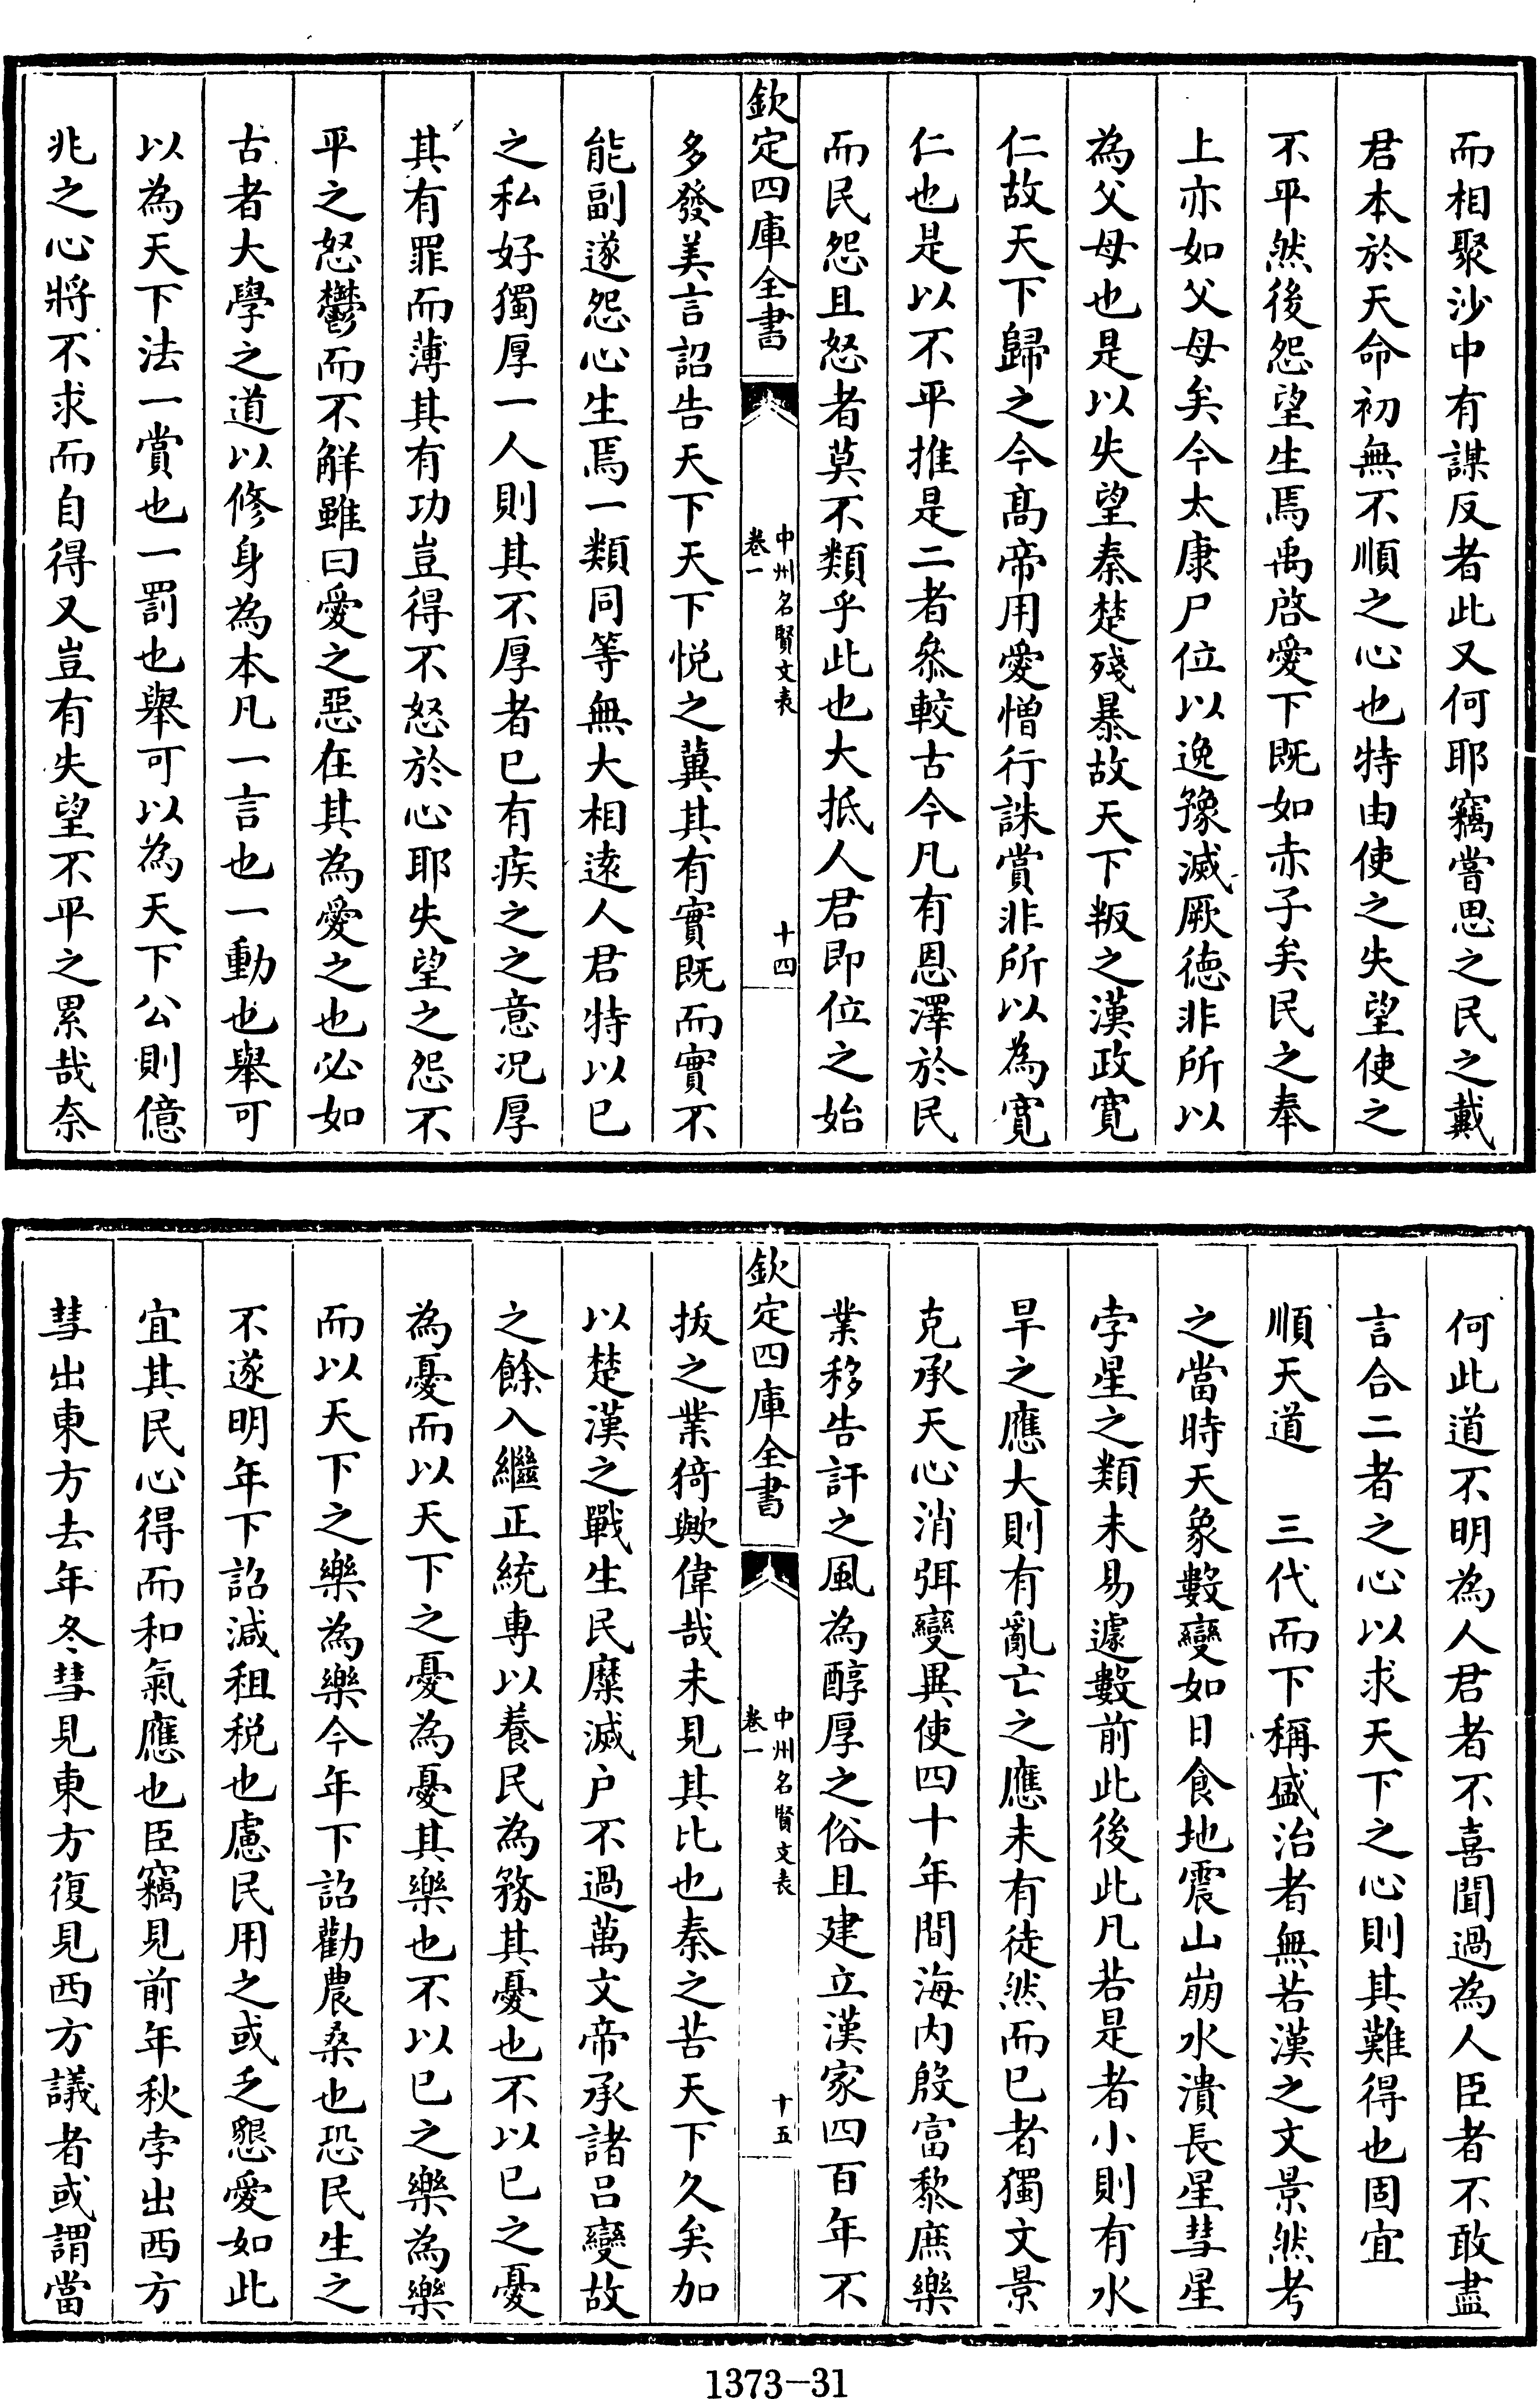 而相聚沙中有謀反者此又何耶竊嘗思之民之戴
君本於天命初無不順之心也特由使之失望使之
不平然後怨望生焉禹啓愛下既如赤子矣民之奉
上亦如父母矣今太康尸位以逸豫滅厥徳非所以
為父母也是以失望秦楚殘暴故天下叛之漢政寛
仁故天下歸之今髙帝用愛憎行誅賞非所以為寛
仁也是以不平推是二者叅較古今凡有恩澤於民
而民怨且怒者莫不類乎此也大抵人君即位之始
欽定四庫全書
中州名賢文表
卷一
十四
多發美言詔告天下天下悦之冀其有實既而實不
能副遂怨心生焉一類同等無大相逺人君特以已
之私好獨厚一人則其不厚者已有疾之之意况厚
其有罪而薄其有功豈得不怒於心耶失望之怨不
平之怒鬱而不解雖曰愛之惡在其為愛之也必如
古者大學之道以修身為本凡一言也一動也舉可
以為天下法一賞也一罰也舉可以為天下公則億
兆之心將不求而自得又豈有失望不平之累哉奈
何此道不明為人君者不喜聞過為人臣者不敢盡
言合二者之心以求天下之心則其難得也固宜
順天道　三代而下稱盛治者無若漢之文景然考
之當時天象數變如日食地震山崩水潰長星彗星
孛星之類未易遽數前此後此凡若是者小則有水
旱之應大則有亂亡之應未有徒然而已者獨文景
克承天心消弭變異使四十年間海内殷富黎庶樂
業移告訐之風為醇厚之俗且建立漢家四百年不
欽定四庫全書
中州名賢文表
卷一
十五
拔之業猗歟偉哉未見其比也秦之苦天下久矣加
以楚漢之戰生民糜滅户不過萬文帝承諸吕變故
之餘入繼正統專以養民為務其憂也不以已之憂
為憂而以天下之憂為憂其樂也不以已之樂為樂
而以天下之樂為樂今年下詔勸農桑也恐民生之
不遂明年下詔減租税也慮民用之或乏懇愛如此
宜其民心得而和氣應也臣竊見前年秋孛出西方
彗出東方去年冬彗見東方復見西方議者或謂當
1373-31